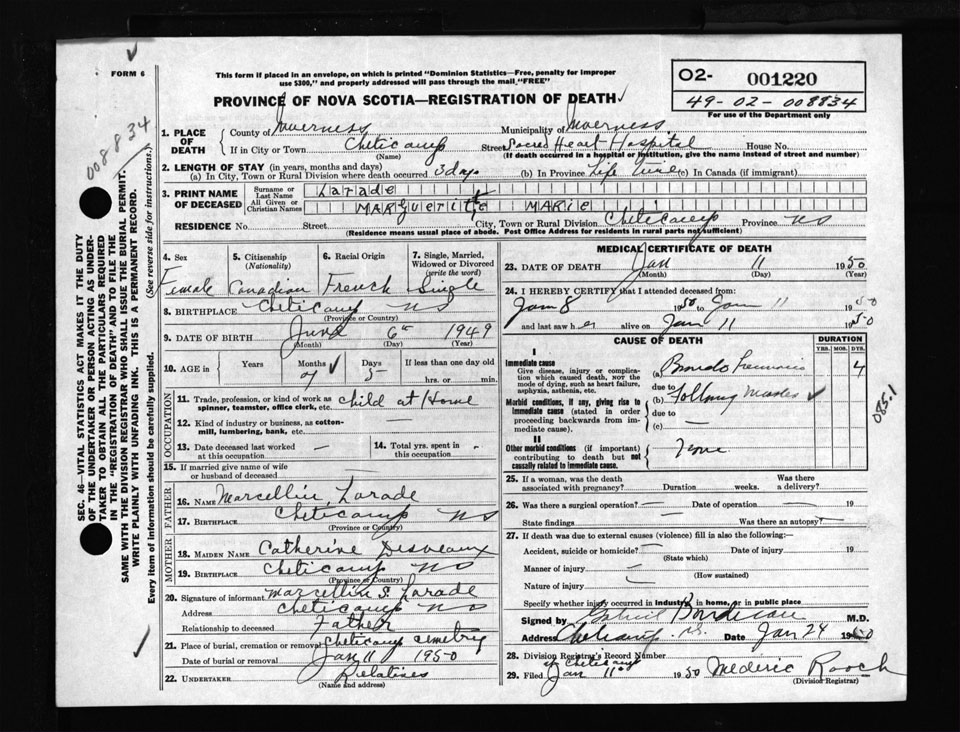 FORM 6
This form if placed in an envelope, on which is printed "Dominion Statistics—Free, penalty for improper
use $300," and properly addressed will pass through the mail "FREE"
PROVINCE OF NOVA SCOTIA—REGISTRATION OF DEATH
O2- 001220
49-02-008834
For use of the Department only
008834
1. PLACE OF DEATH
County of Inverness Municipality of Inverness
If in City or Town Cheticamp Street Sacred Heart Hospital House No.
(Name) (If death occurred in a hospital or institution, give the name instead of street and number)
2. LENGTH OF STAY (in years, months and days)
(a) In City, Town or Rural Division where death occurred 3 days (b) In Province Life time (c) In Canada (if immigrant)
3. PRINT NAME OF DECEASED
Surname or Last Name Larade
All Given or Christian Names MARgueritte MARie
RESIDENCE No. Street City, Town or Rural Division Cheticamp Province NS
(Residence means usual place of abode. Post Office Address for residents in rural parts not sufficient)
4. Sex Female
5. Citizenship (Nationality) Canadian
6. Racial Origin French
7. Single, Married, Widowed or Divorced (write the word) Single
8. BIRTHPLACE Cheticamp NS
(Province or Country)
9. DATE OF BIRTH June 6th 1949
(Month) (Day) (Year)
10. AGE in Years Months 7 Days 5 If less than one day old
hrs. or min.
OCCUPATION
11. Trade, profession, or kind of work as spinner, teamster, office clerk, etc. child at Home
12. Kind of industry or business, as cotton-mill, lumbering, bank, etc. —
13. Date deceased last worked at this occupation —
14. Total yrs. spent in this occupation -
15. If married give name of wife or husband of deceased
FATHER
16. NAME Marcellin Larade
17. BIRTHPLACE Cheticamp NS
(Province or Country)
MOTHER
18. MAIDEN NAME Catherine Desveaux
19. BIRTHPLACE Cheticamp NS
(Province or Country)
20. Signature of informant Marcellin S. Larade
Address Cheticamp NS
Relationship to deceased Father
21. Place of burial, cremation or removal Cheticamp cemetry
Date of burial or removal Jan 11 1950
22. UNDERTAKER Relatives
(Name and address)
MEDICAL CERTIFICATE OF DEATH
23. DATE OF DEATH Jan 11 1950
(Month) (Day) (Year)
24. I HEREBY CERTIFY that I attended deceased from:
Jan 8 1950 to Jan 11 1950
and last saw her alive on Jan 11 1950
CAUSE OF DEATH
DURATION
YRS. MOS. DYS.
I
Immediate cause
Give disease, injury or complication which caused death, not the mode of dying, such as heart failure, asphyxia, asthenia, etc.
(a) 4
due to
Morbid conditions, if any, giving rise to immediate cause (stated in order proceeding backwards from immediate cause).
(b) Measles
due to
(c) —
085.1
II
Other morbid conditions (if important) contributing to death but not causally related to immediate cause.
None
25. If a woman, was the death associated with pregnancy? Duration weeks. Was there a delivery?
26. Was there a surgical operation? — Date of operation 19
State findings — Was there an autopsy?
27. If death was due to external causes (violence) fill in also the following:
Accident, suicide or homicide? — Date of injury 19
(State which)
Manner of injury —
(How sustained)
Nature of injury —
Specify whether injury occurred in industry, in home, or in public place
Signed by Gabriel Boudreau M.D.
Address Cheticamp NS. Date Jan 24 1950
28. Division Registrar's Record Number
at Cheticamp
29. Filed Jan 11th 1950 Mederic Roach
(Division Registrar)
SEC. 46—VITAL STATISTICS ACT MAKES IT THE DUTY
OF THE UNDERTAKER OR PERSON ACTING AS UNDER-
TAKER TO OBTAIN ALL THE PARTICULARS REQUIRED
IN THE "REGISTRATION OF DEATH" AND TO FILE THE
SAME WITH THE DIVISION REGISTRAR WHO SHALL ISSUE THE BURIAL PERMIT.
WRITE PLAINLY WITH UNFADING INK. THIS IS A PERMANENT RECORD.
Every item of information should be carefully supplied. (See reverse side for instructions.)